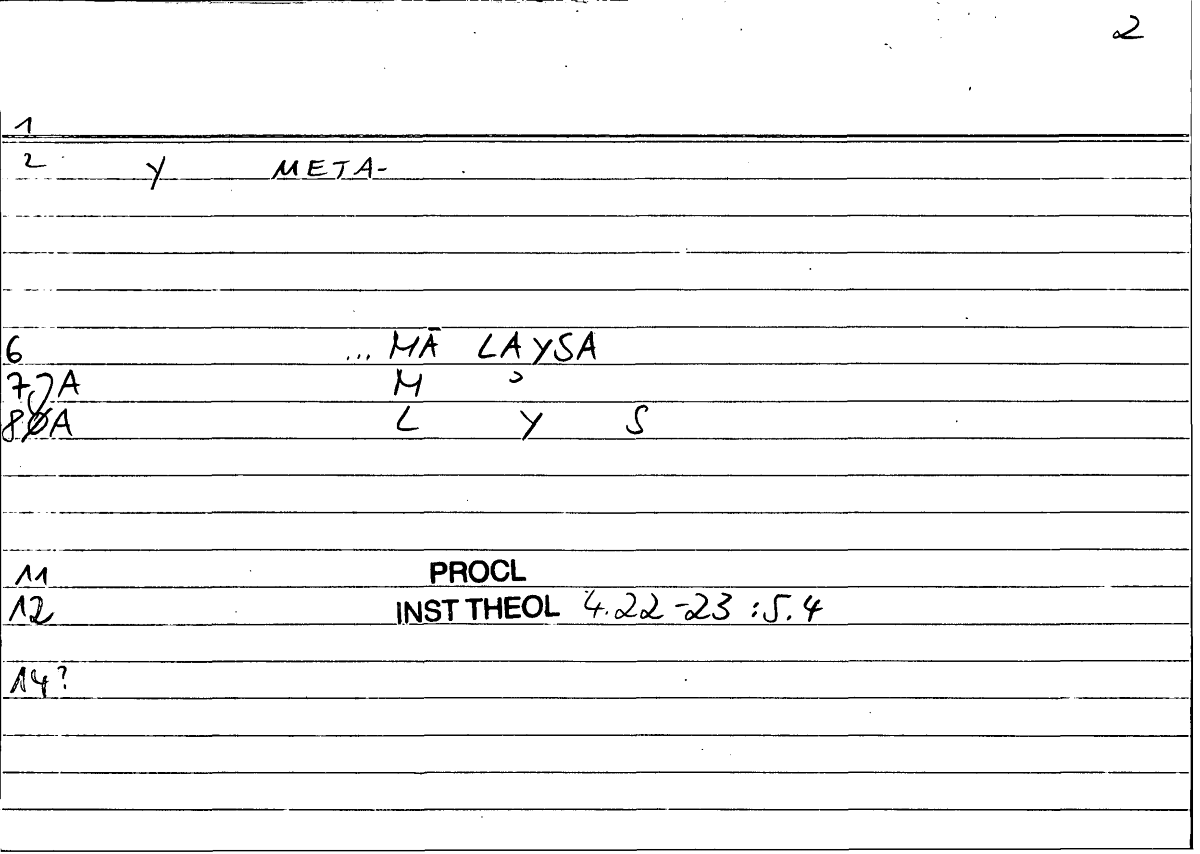 2
1
2 Y META-
6 ... MĀ LAYSA
7 A M ʾ
8 A L Y S
11 PROCL
12 INST THEOL 4.22-23 :5.4
14?